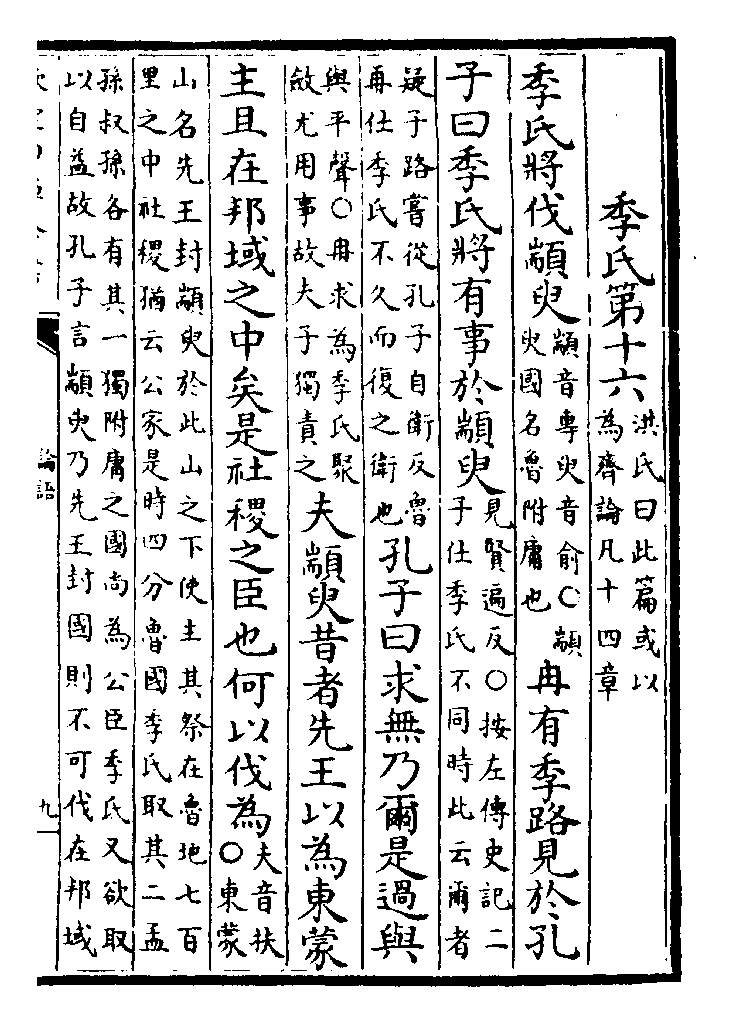 季氏第十六洪氏曰此篇或以
為齊論凡十四章
季氏將伐顓臾顓音專臾音俞○顓
臾國名魯附庸也冉有季路見於孔
子曰季氏將有事於顓臾見賢遍反○按左傳史記二
子仕季氏不同時此云爾者
疑子路嘗從孔子自衛反魯
再仕季氏不久而復之衛也孔子曰求無乃爾是過與
與平聲○冉求為季氏聚
斂尤用事故夫子獨責之夫顓臾昔者先王以為東蒙
主且在邦域之中矣是社稷之臣也何以伐為夫音扶
○東蒙
山名先王封顓臾於此山之下使主其祭在魯地七百
里之中社稷猶云公家是時四分魯國季氏取其二孟
孫叔孫各有其一獨附庸之國尚為公臣季氏又欲取
以自益故孔子言顓臾乃先王封國則不可伐在邦域
論語
九